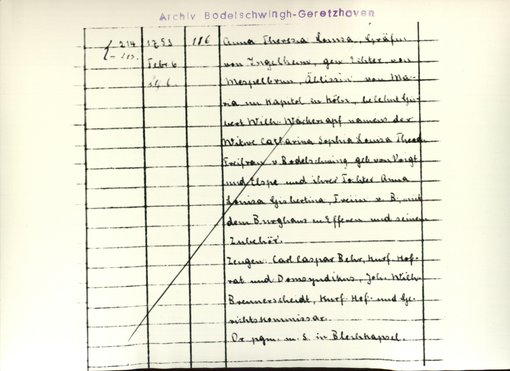 Archiv Bodelschwingh-Geretzhoven
214 1753 116 Anna Theresia Louisa, Gräfin
Febr. 6 von Ingelheim, gen. Echter von
Mespelbrun, Äbtissin von Ma-
ria im Kapitol in Köln, belehnt Gu-
Wilh. Wackerzapf namens der
Witwe Catharina Sophia Louisa Theod.
Freifrau v. Bodelschwing geb. von Voigt
und Elspe und ihrer Tochter Anna
Louisa Gisbertina, Freiin v. B., mit
dem Burghaus in Efferen und seinem
Zubehör.
Zeugen: Carl Caspar Behr, Kurf. Hof-
rat und Domsyndikus, Joh. Wilh.
Brennerscheidt, Kurf. Hof- und Ge-
richtskommissar.
Or. pgm. m. S. in Blechkapsel.